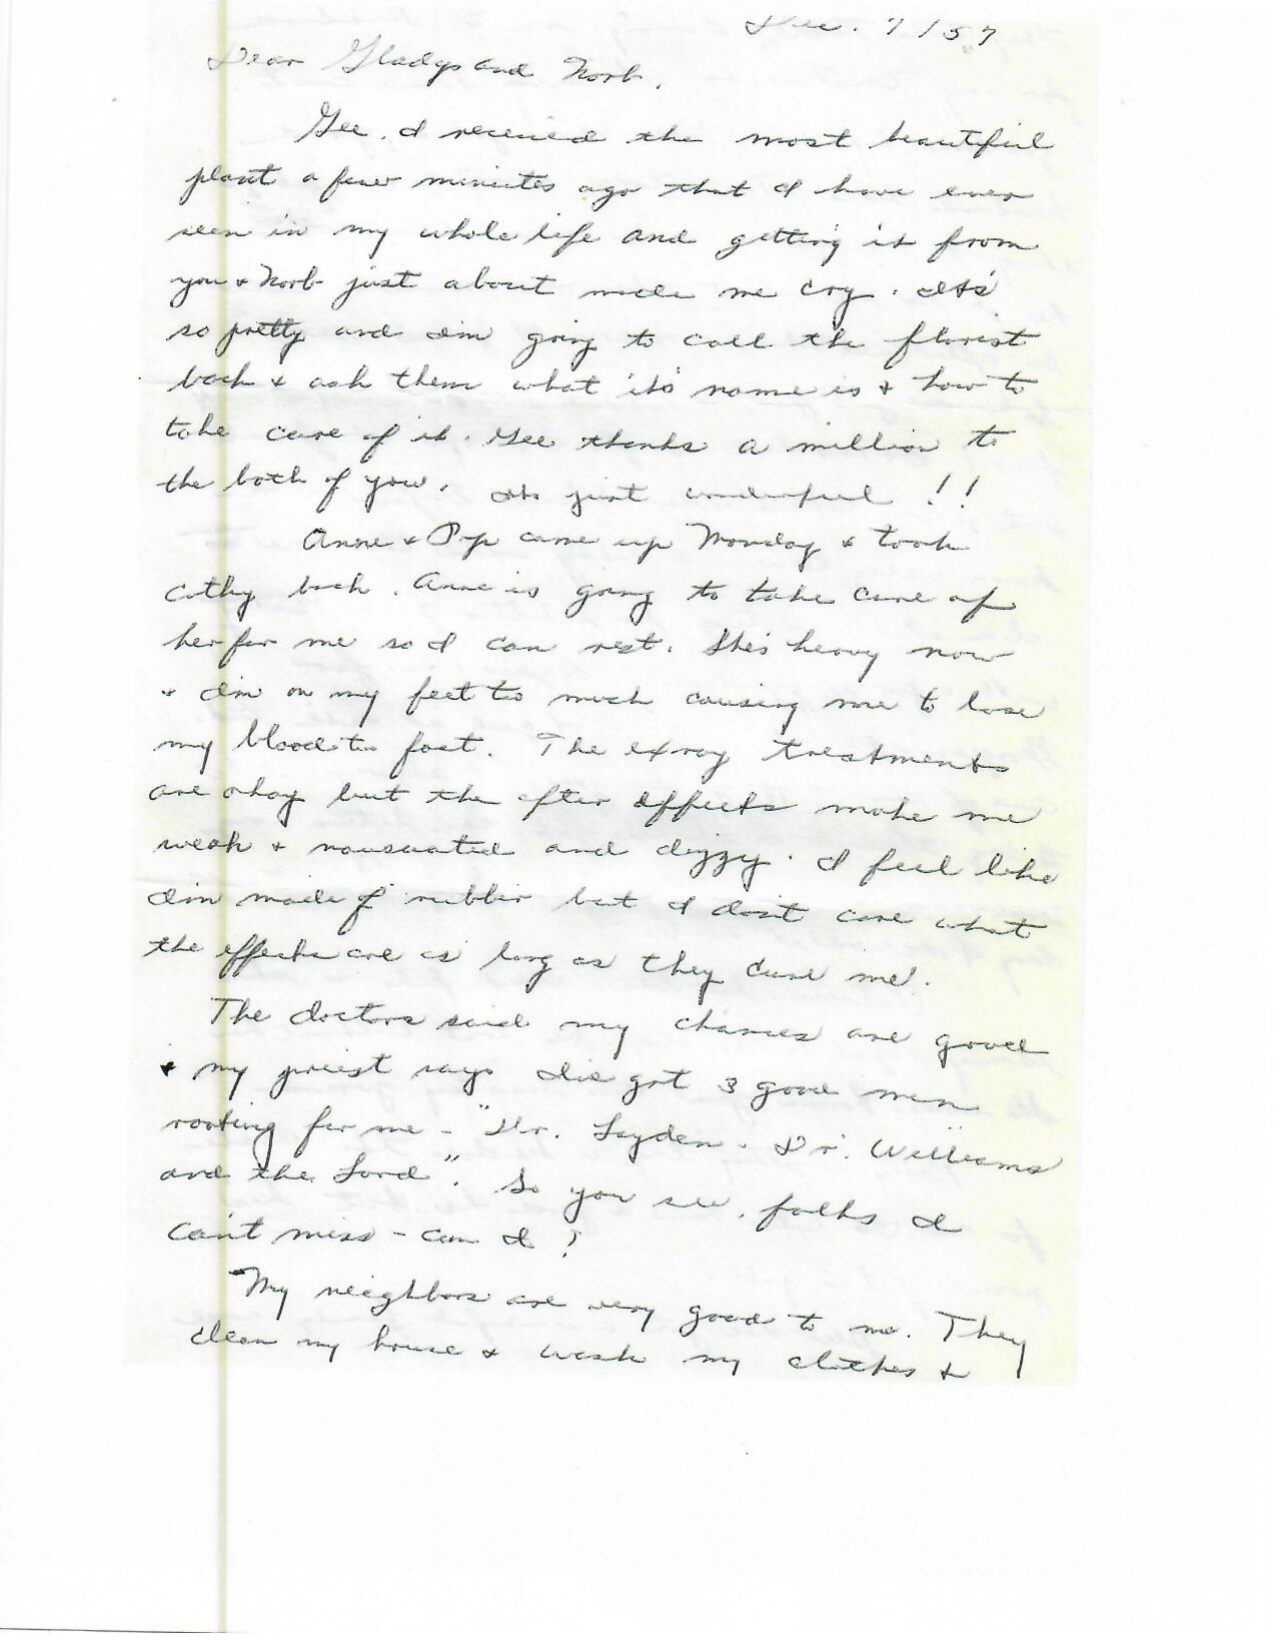 Dec. 7/57
Dear Gladys and Norb,
Gee, I received the most beautiful
plant a few minutes ago that I have ever
seen in my whole life and getting it from
you & Norb just about made me cry. It's
so pretty and I'm going to call the florist
back & ask them what it's name is & how to
take care of it. Gee thanks a million to
the both of you. Its just wonderful !!
Anne & Pop came up Monday & took
Cathy back. Anne is going to take care of
her for me so I can rest. She's heavy now
& I'm on my feet to much causing me to lose
my blood to fast. The exray treatments
are okay but the after effects make me
weak & nauseated and dizzy. I feel like
I'm made of rubber but I don't care what
the effects are as long as they cure me.
The doctors said my chances are good
& my priest says I've got 3 good men
rooting for me - "Dr. Layden. Dr. Williams
and the Lord". So you see, folks I
can't miss - can I?
My neighbors are very good to me. They
clean my house & wash my clothes &